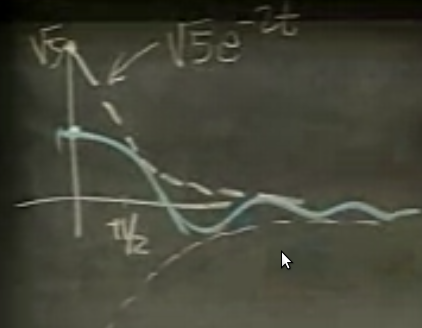 √5
√5e^-2t
π/2